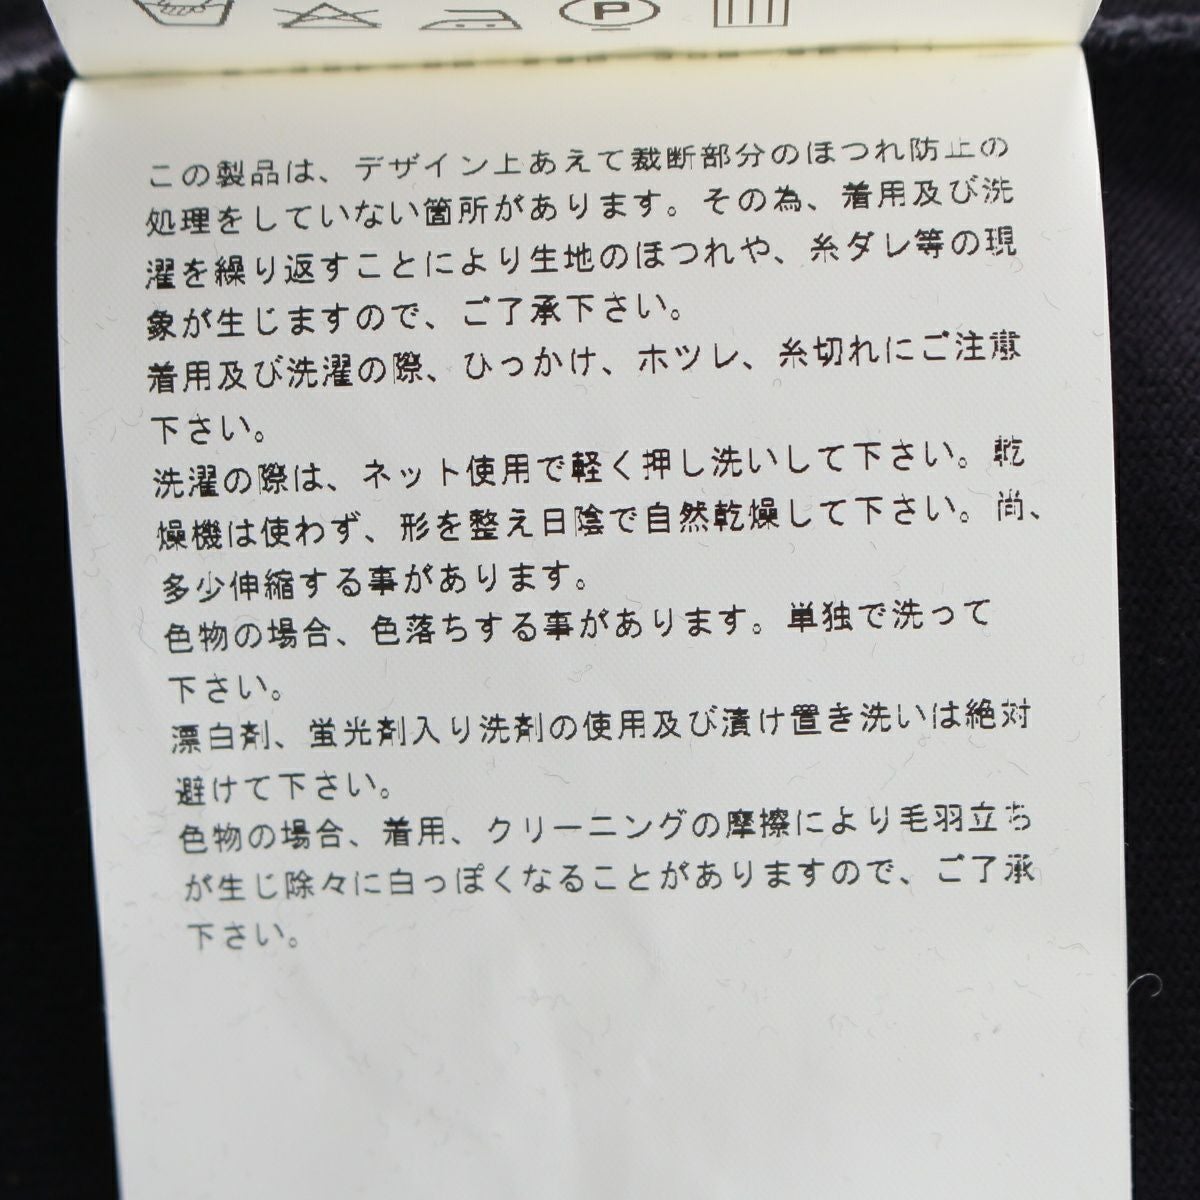 P
この製品は、デザイン上あえて裁断部分のほつれ防止の
処理をしていない箇所があります。その為、着用及び洗
濯を繰り返すことにより生地のほつれや、糸ダレ等の現
象が生じますので、ご了承下さい。
着用及び洗濯の際、ひっかけ、ホツレ、糸切れにご注意
下さい。
洗濯の際は、ネット使用で軽く押し洗いして下さい。乾
燥機は使わず、形を整え日陰で自然乾燥して下さい。尚、
多少伸縮する事があります。
色物の場合、色落ちする事があります。単独で洗って
下さい。
漂白剤、蛍光剤入り洗剤の使用及び漬け置き洗いは絶対
避けて下さい。
色物の場合、着用、クリーニングの摩擦により毛羽立ち
が生じ除々に白っぽくなることがありますので、ご了承
下さい。